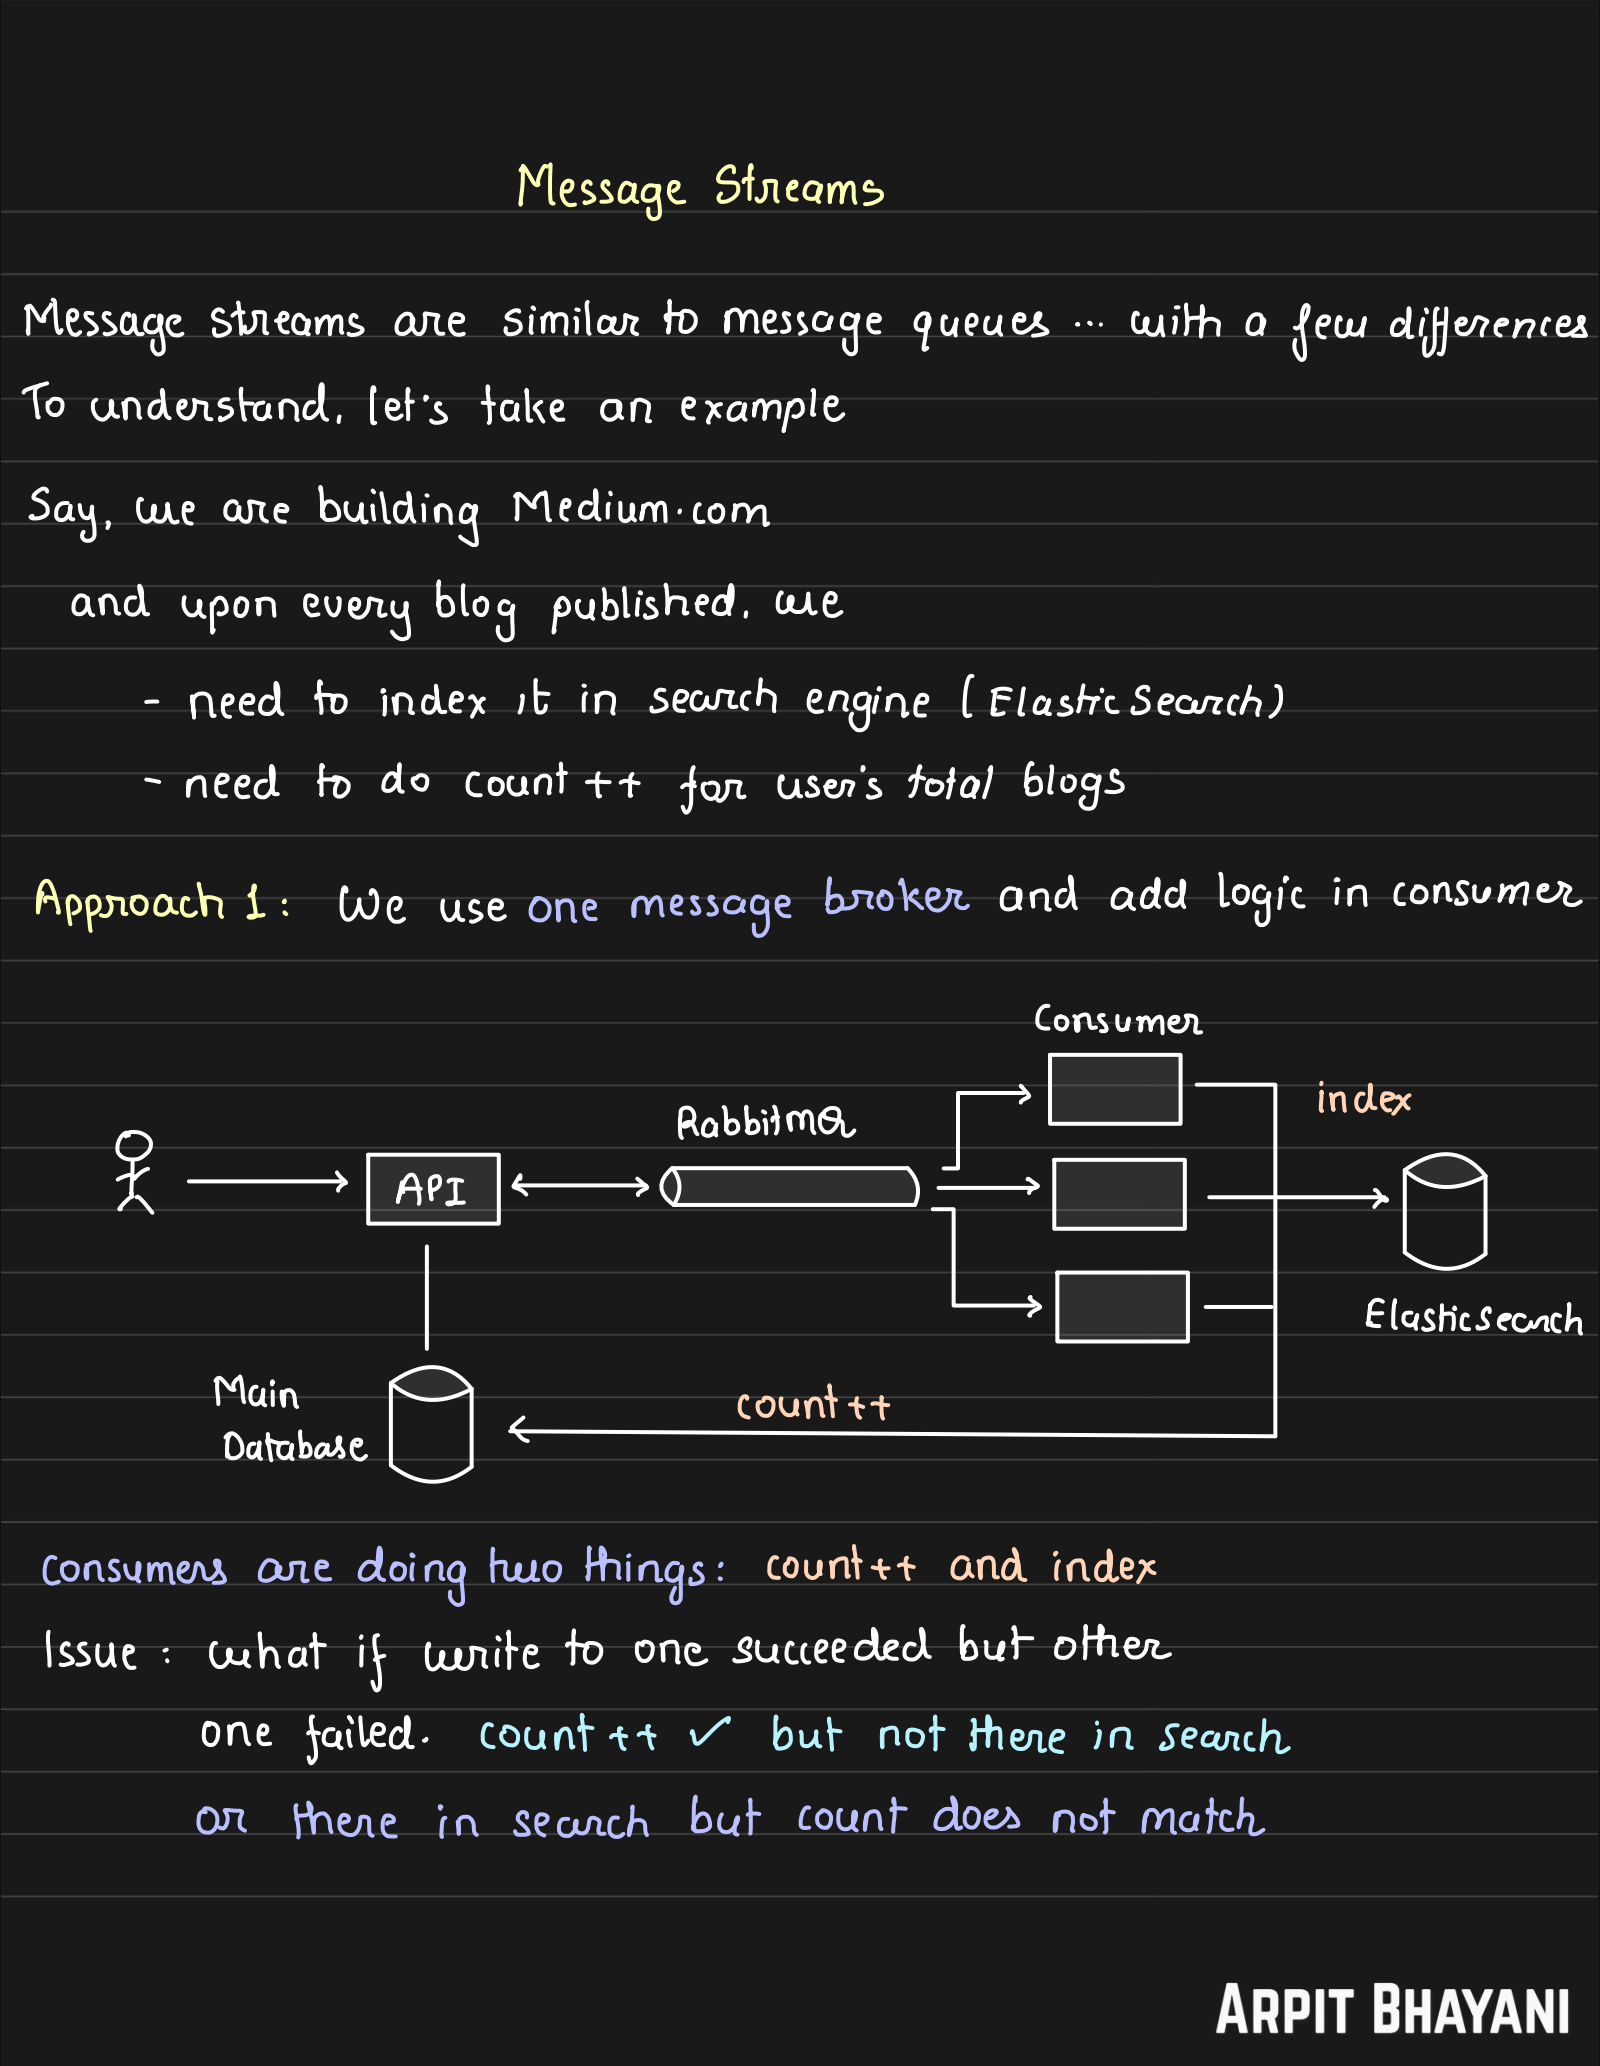 Message Streams
Message streams are similar to message queues ... with a few differences
To understand, let's take an example
Say, we are building Medium.com
and upon every blog published, we
- need to index it in search engine (Elastic Search)
- need to do count++ for user's total blogs
Approach 1: We use one message broker and add logic in consumer
Consumer
index
RabbitMQ
API
Elasticsearch
Main
Database
count++
Consumers are doing two things: count++ and index
Issue: what if write to one succeeded but other
one failed. count++ ✓ but not there in search
or there in search but count does not match
ARPIT BHAYANI